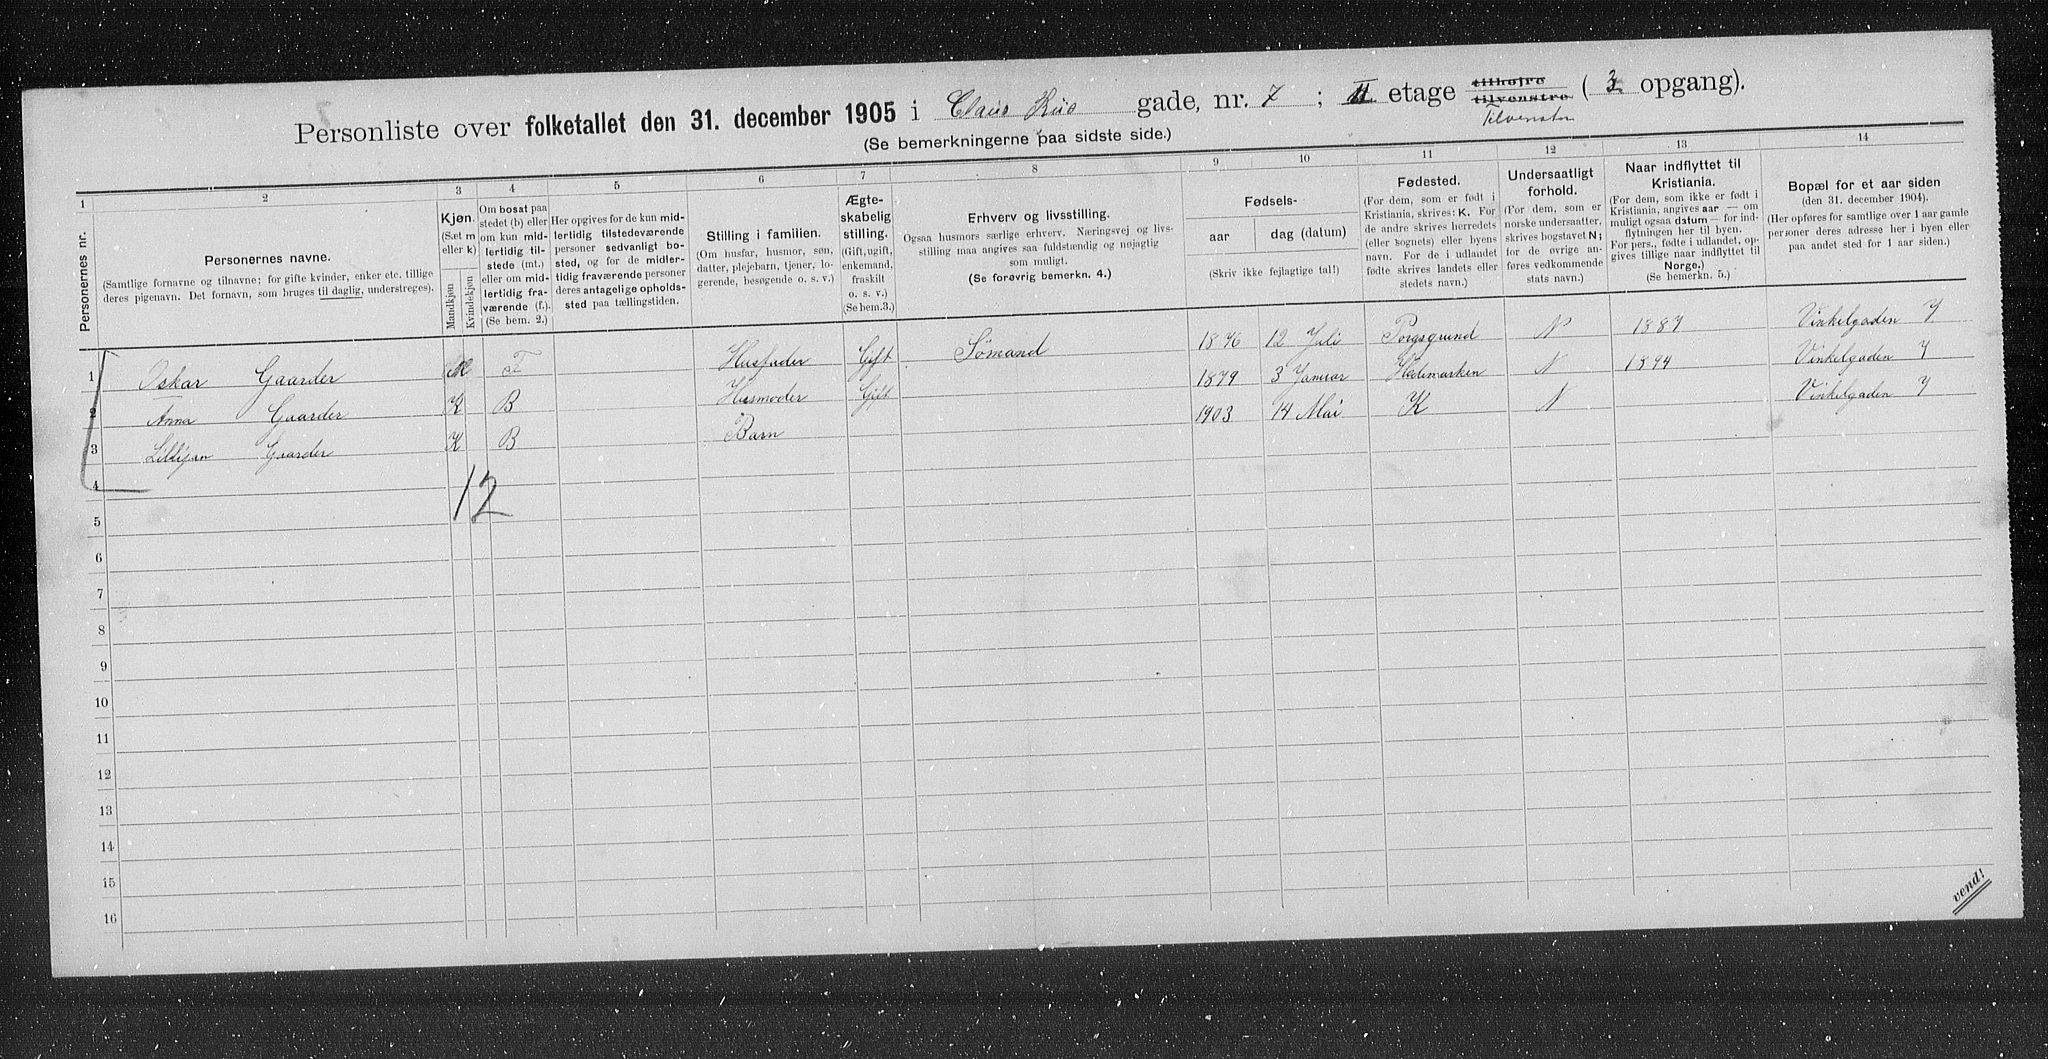 Personliste over folketallet den 31. december 1905 i Claus Riis gade, nr. 7 ; II etage tilhøjre tilvenstre ( 3 opgang).
Tilvenstr
(Se bemerkningerne paa sidste side.)
1 2 3 4 5 6 7 8 9 10 11 12 13 14
Personernes nr.
Personernes navne.
(Samtlige fornavne og tilnavne; for gifte kvinder, enker etc. tillige
deres pigenavn. Det fornavn, som bruges til daglig, understreges).
Kjøn.
(Sæt m
eller k)
Mandkjøn
Kvindekjøn
Om bosat paa
stedet (b) eller
om kun mid-
lertidig til-
stede (mt.)
eller om mid-
lertidig fra-
værende (f.).
(Se bem. 2.)
Her opgives for de kun mid-
lertidig tilstedeværende
personer sedvanligt bo-
sted, og for de midler-
tidig fraværende personer
deres antagelige opholds-
sted paa tællingstiden.
Stilling i familien.
(Om husfar, husmor, søn,
datter, plejebarn, tjener, lo-
gerende, besøgende o. s. v.)
Ægte-
skabelig
stilling.
(Gift, ugift,
enkemand,
fraskilt
o. s. v.)
(Se bem.3.)
Erhverv og livsstilling.
Ogsaa husmors særlige erhverv. Næringsvej og livs-
stilling maa angives saa fuldstændig og nøjagtig
som muligt.
(Se forøvrig bemerkn. 4.)
Fødsels-
aar dag (datum)
(Skriv ikke fejlagtige tal!)
Fødested.
(For dem, som er født i
Kristiania, skrives: K. For
de andre skrives herredets
(eller sognets) eller byens
navn. For de i udlandet
fødte skrives landets eller
stedets navn.)
Undersaatligt
forhold.
(For dem, som er
norske undersaatter,
skrives bogstavet N;
for de øvrige an-
føres vedkommende
stats navn.)
Naar indflyttet til
Kristiania.
(For dem, som ikke er født i
Kristiania, angives aar — om
muligt ogsaa datum — for ind-
flytningen her til byen.
For pers., fødte i udlandet, op-
gives tillige naar indflyttet til
Norge.)
(Se bemerkn. 5.)
Bopæl for et aar siden
(den 31. december 1904).
(Her opføres for samtlige over 1 aar gamle
personer deres adresse her i byen eller
paa andet sted for 1 aar siden.)
1 Oskar Gaarder M F Husfader Gift Sømand 1876 12 Juli Porsgrund N 1887 Vinkelgaden 7
2 Anna Gaarder K B Husmoder Gift 1879 3 Januar Hedemarken N 1894 Vinkelgaden 7
3 Lillijan Gaarder K B Barn 1903 14 Mai K N Vinkelgaden 7
4
12
5
6
7
8
9
10
11
12
13
14
15
16
vend!